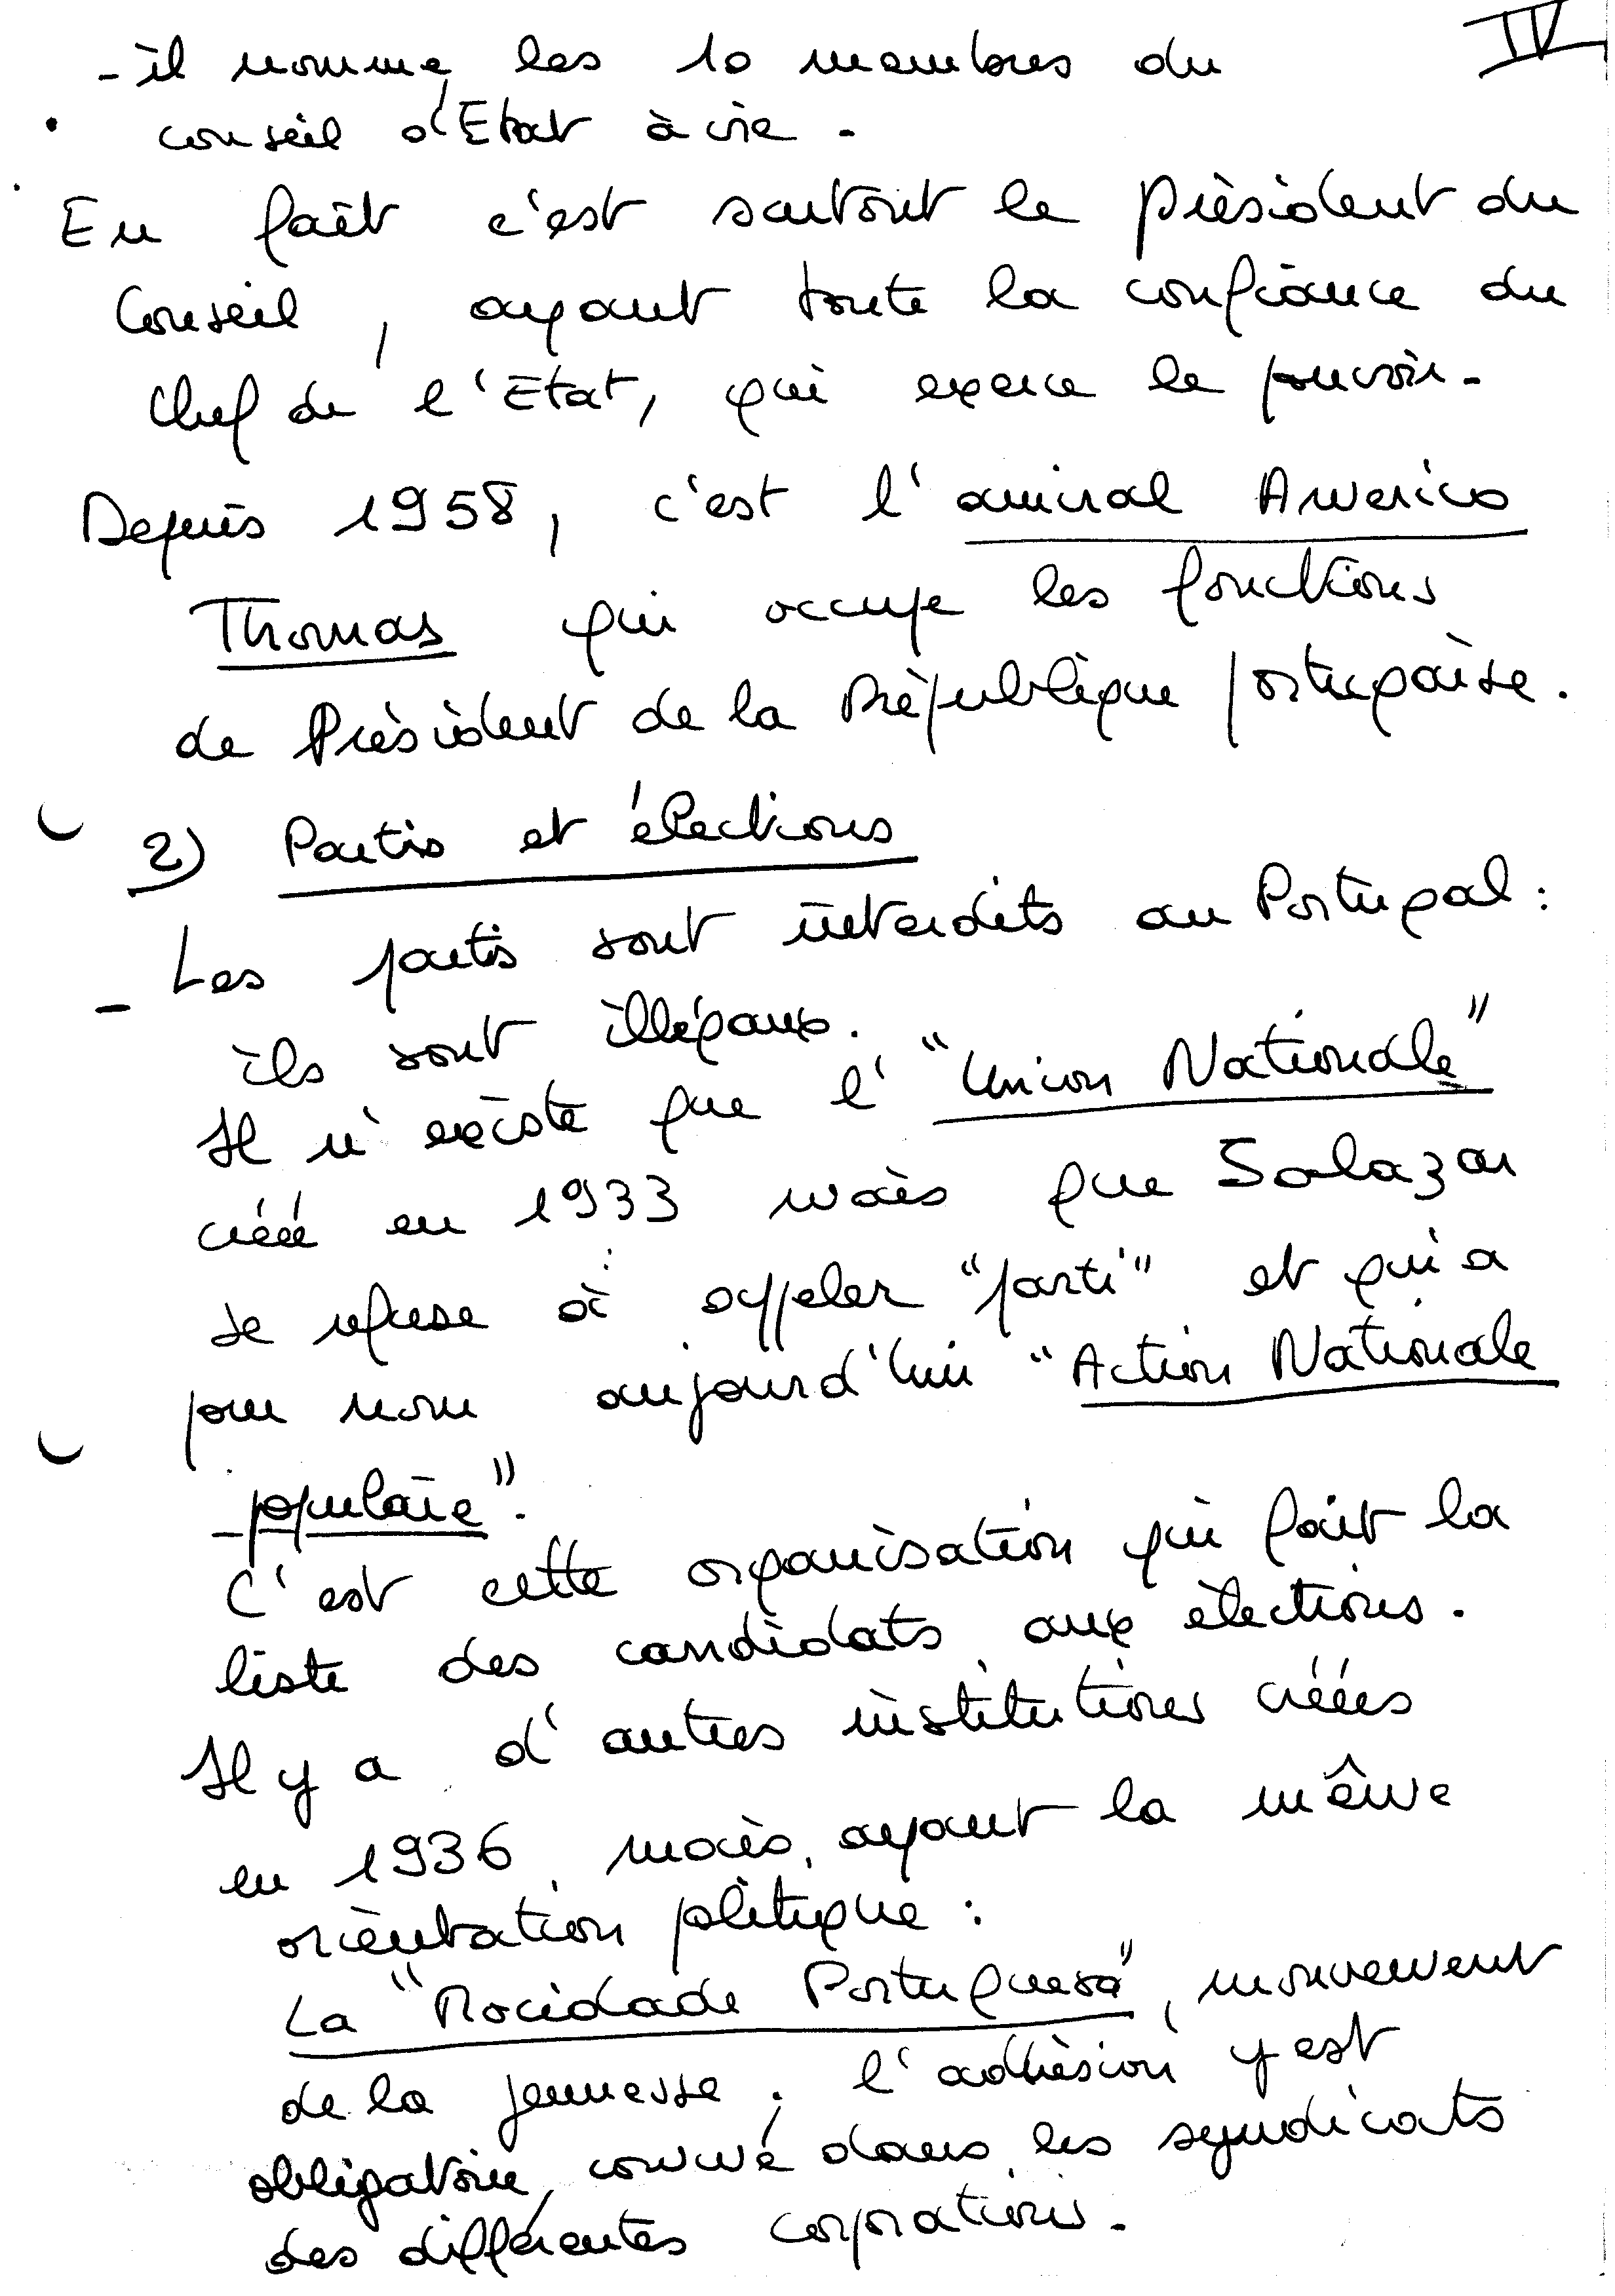 IV
- il nomme les 10 membres du
conseil d'Etat à vie.
En fait c'est surtout le président du
Conseil, ayant toute la confiance du
Chef de l'Etat, qui exerce le pouvoir.
Depuis 1958, c'est l'amiral Americo
Thomas qui occupe les fonctions
de Président de la République portugaise.
2) Partis et élections
- Les partis sont interdits au Portugal :
ils sont illégaux.
Il n'existe que l'"Union Nationale"
créée en 1933 mais que Salazar
se refuse à appeler "parti" et qui a
pour nom aujourd'hui "Action Nationale
populaire".
C'est cette organisation qui fait la
liste des candidats aux élections.
Il y a d'autres institutions créées
en 1936, mais, ayant la même
orientation politique :
La "Mocidade Portuguesa", mouvement
de la jeunesse. l'adhésion y est
obligatoire, comme dans les syndicats
des différentes corporations.